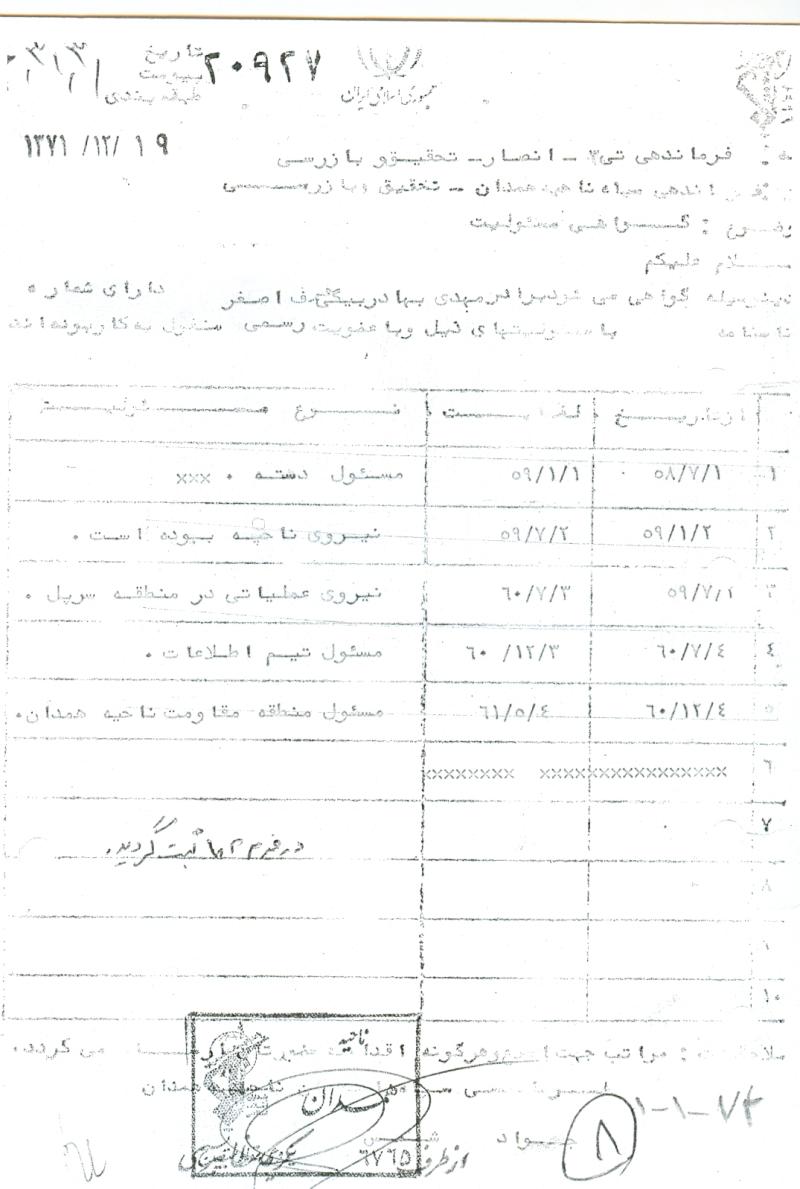 تاریخ
۲۰۹۲۷
پیوست
طبقه بندی
جمهوری اسلامی ایران
۱۳۷۱/۱۲/۱۹
فرماندهی تی۳ - انصار - تحقیق و بازرسی
سپاه ناحیه همدان - تحقیق وبازرسی
گواهی مسئولیت
سلام علیکم
گواهی می شود برادر مهدی بهادربیگی ف اصغر دارای شماره
با مسئولیتهای ذیل وبا عضویت رسمی مشغول به کار بوده اند
از تاریخ لغایت نوع مسئولیت
۱ ۵۸/۷/۱ ۵۹/۱/۱ مسئول دسته . xxx
۲ ۵۹/۱/۲ ۵۹/۷/۲ نیروی ناحیه بوده است .
۳ ۵۹/۷/۲ ۶۰/۷/۳ نیروی عملیاتی در منطقه سرپل .
٤ ۶۰/۷/٤ ۶۰/۱۲/۳ مسئول تیم اطلاعات .
۵ ۶۰/۱۲/٤ ۶۱/۵/٤ مسئول منطقه مقاومت ناحیه همدان.
۶ xxxxxxxxxxxxxxxx xxxxxxxx
۷
در فرم ثبت گردید.
۸
۹
۱۰
مراتب جهت هرگونه می گردد.
ناحیه
همدان
جواد
۸
از طرف ۶۷۶۵